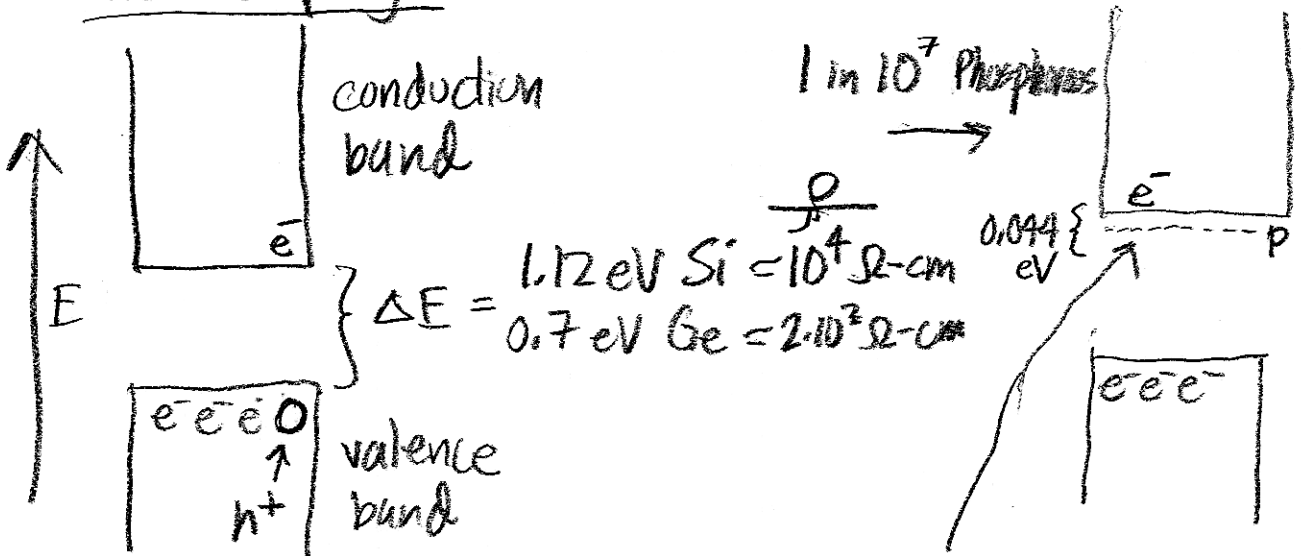 conduction
band
e⁻
E
ρ
ΔE = 1.12 eV Si = 10⁴ Ω-cm
0.7 eV Ge = 2·10² Ω-cm
e⁻ e⁻ e⁻ O
h⁺
valence
band
1 in 10⁷ Phosphorus
e⁻
0.044
eV
P
e⁻ e⁻ e⁻